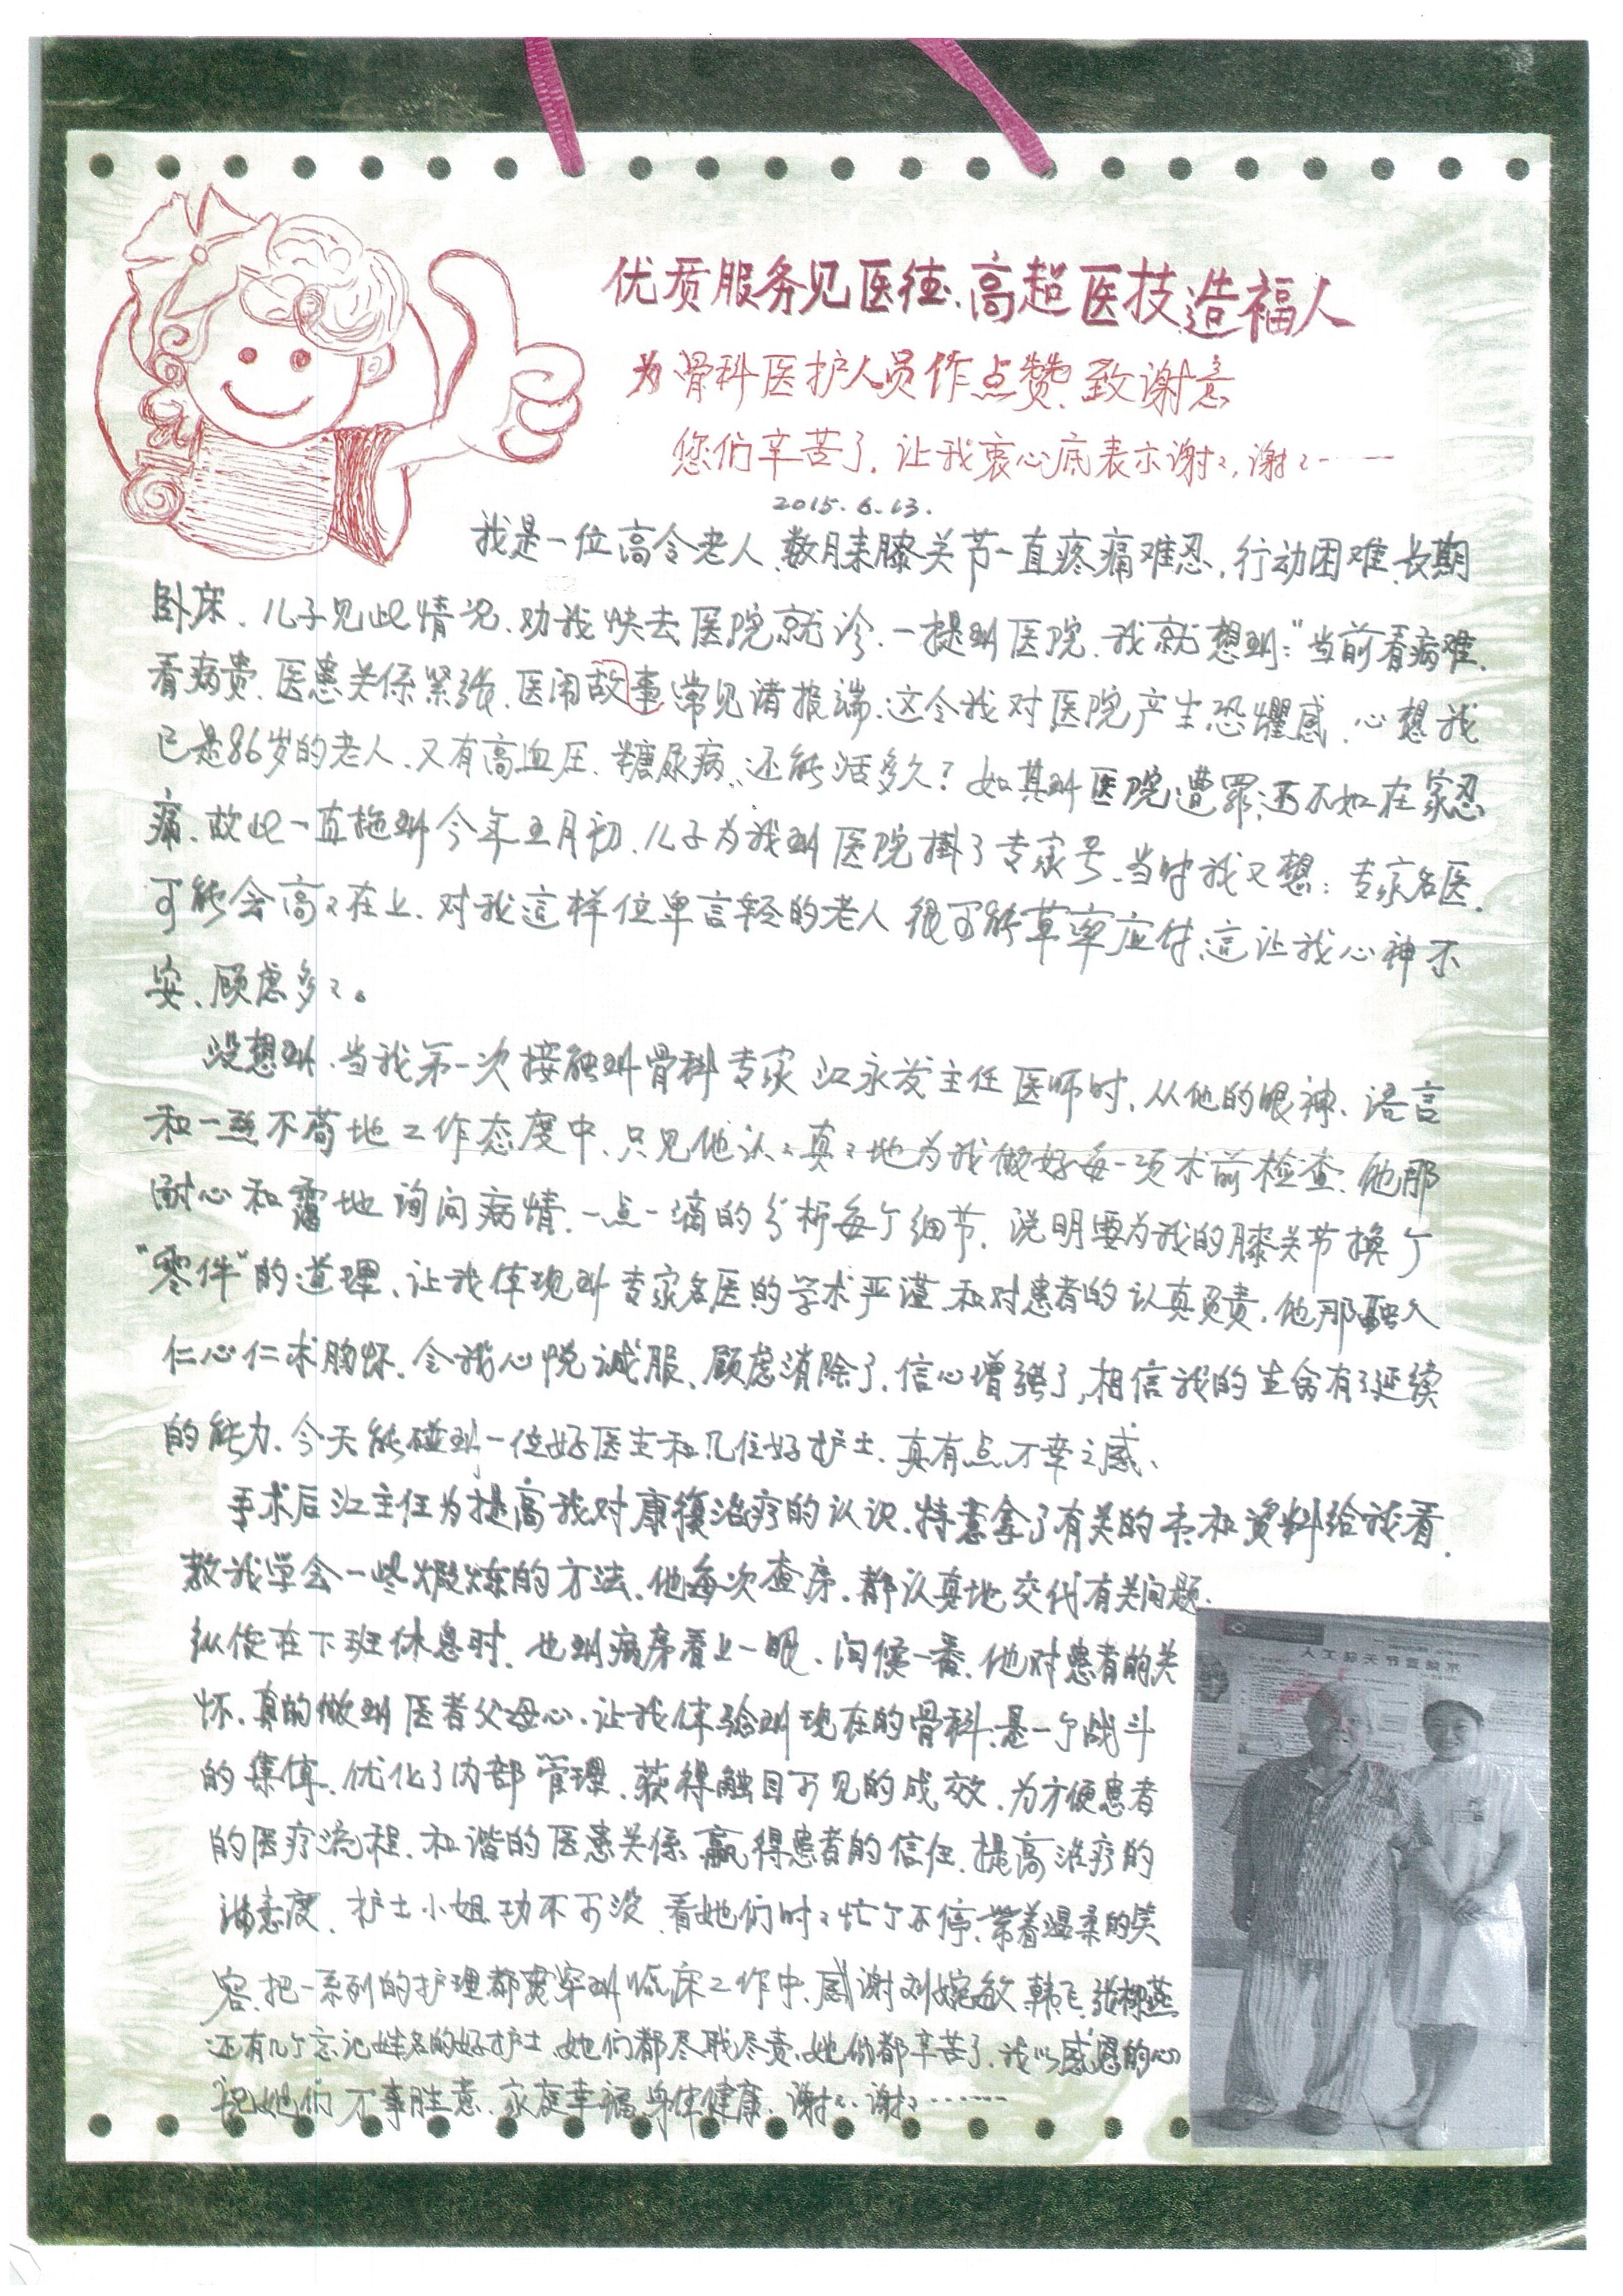 优质服务见医德、高超医技造福人
为骨科医护人员作点赞、致谢意
您们辛苦了，让我衷心底表示谢〻，谢〻……
2015.6.13.
我是一位高令老人、数月来膝关节一直疼痛难忍，行动困难、长期
卧床、儿子见此情况、劝我快去医院就诊、一提到医院、我就想到："当前看病难、
看病贵、医患关係紧张、医闹故事常见诸报端、这令我对医院产生恐惧感、心想我
已是86岁的老人、又有高血压、糖尿病、还能活多久？如其到医院遭罪、还不如在家忍
痛、故此一直拖到今年五月初、儿子为我到医院掛了专家号、当时我又想：专家名医、
可能会高〻在上、对我这样位卑言轻的老人很可能草率应付、这让我心神不
安、顾虑多〻。
没想到、当我第一次接触到骨科专家江永发主任医师时、从他的眼神、语言
和一丝不苟地工作态度中、只见他认〻真〻地为我做好每一项术前检查、他那
耐心和蔼地询问病情、一点一滴的分析每个细节、说明要为我的膝关节换个
"零件"的道理、让我体现到专家名医的学术严谨和对患者的认真负责、他那融入
仁心仁术胸怀、令我心悦诚服、顾虑消除了、信心增强了，相信我的生命有了延续
的能力、今天能碰到一位好医生和几位好护士、真有点万幸之感、
手术后江主任为提高我对康復治疗的认识、特意拿了有关的书和资料给我看、
教我学会一些煅炼的方法、他每次查房、都认真地交代有关问题、
纵使在下班休息时、也到病房看上一眼、问候一番、他对患者的关
怀、真的做到医者父母心、让我体验到现在的骨科、是一个战斗
的集体、优化了内部管理、获得触目可见的成效、为方便患者
的医疗流程、和谐的医患关係、赢得患者的信任、提高治疗的
满意度、护士小姐功不可没、看她们时〻忙个不停、带着温柔的笑
容、把一系列的护理都贯穿到临床工作中、感谢刘婉敏、韩飞、张柳燕
还有几个忘记姓名的好护士、她们都尽职尽责、她们都辛苦了、我以感恩的心
祝她们万事胜意、家庭幸福、身体健康、谢〻、谢〻……
人工膝关节置换术